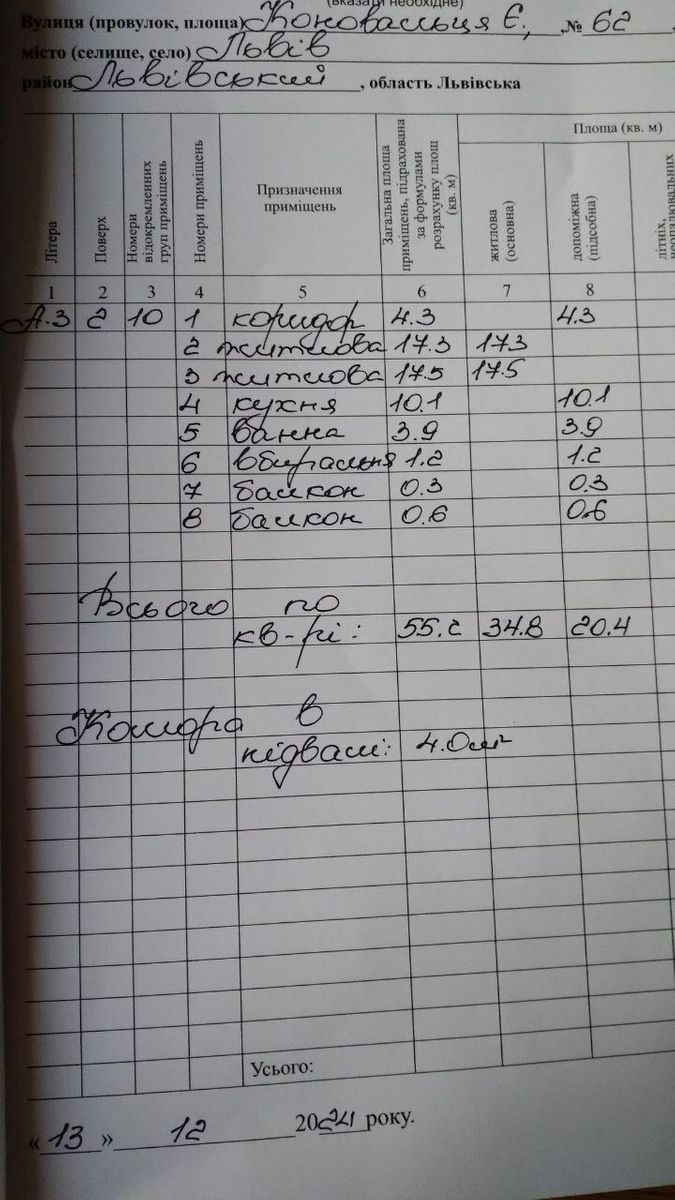 (вказати необхідне)
Вулиця (провулок, площа) Коновальця Є., № 62
місто (селище, село) Львів
район Львівський, область Львівська
Літера
Поверх
Номери відокремленних груп приміщень
Номери приміщень
Призначення приміщень
Загальна площа приміщень, підрахована за формулами розрахунку площ (кв. м)
Площа (кв. м)
житлова (основна)
допоміжна (підсобна)
літніх,
1 2 3 4 5 6 7 8
А.3 2 10 1 коридор 4.3 4.3
2 житлова 17.3 17.3
3 житлова 17.5 17.5
4 кухня 10.1 10.1
5 ванна 3.9 3.9
6 вбиральня 1.2 1.2
7 балкон 0.3 0.3
8 балкон 0.6 0.6
Всього по
кв-рі: 55.2 34.8 20.4
Комора в
підвалі: 4.0 м²
Усього:
«13» 12 2024 року.